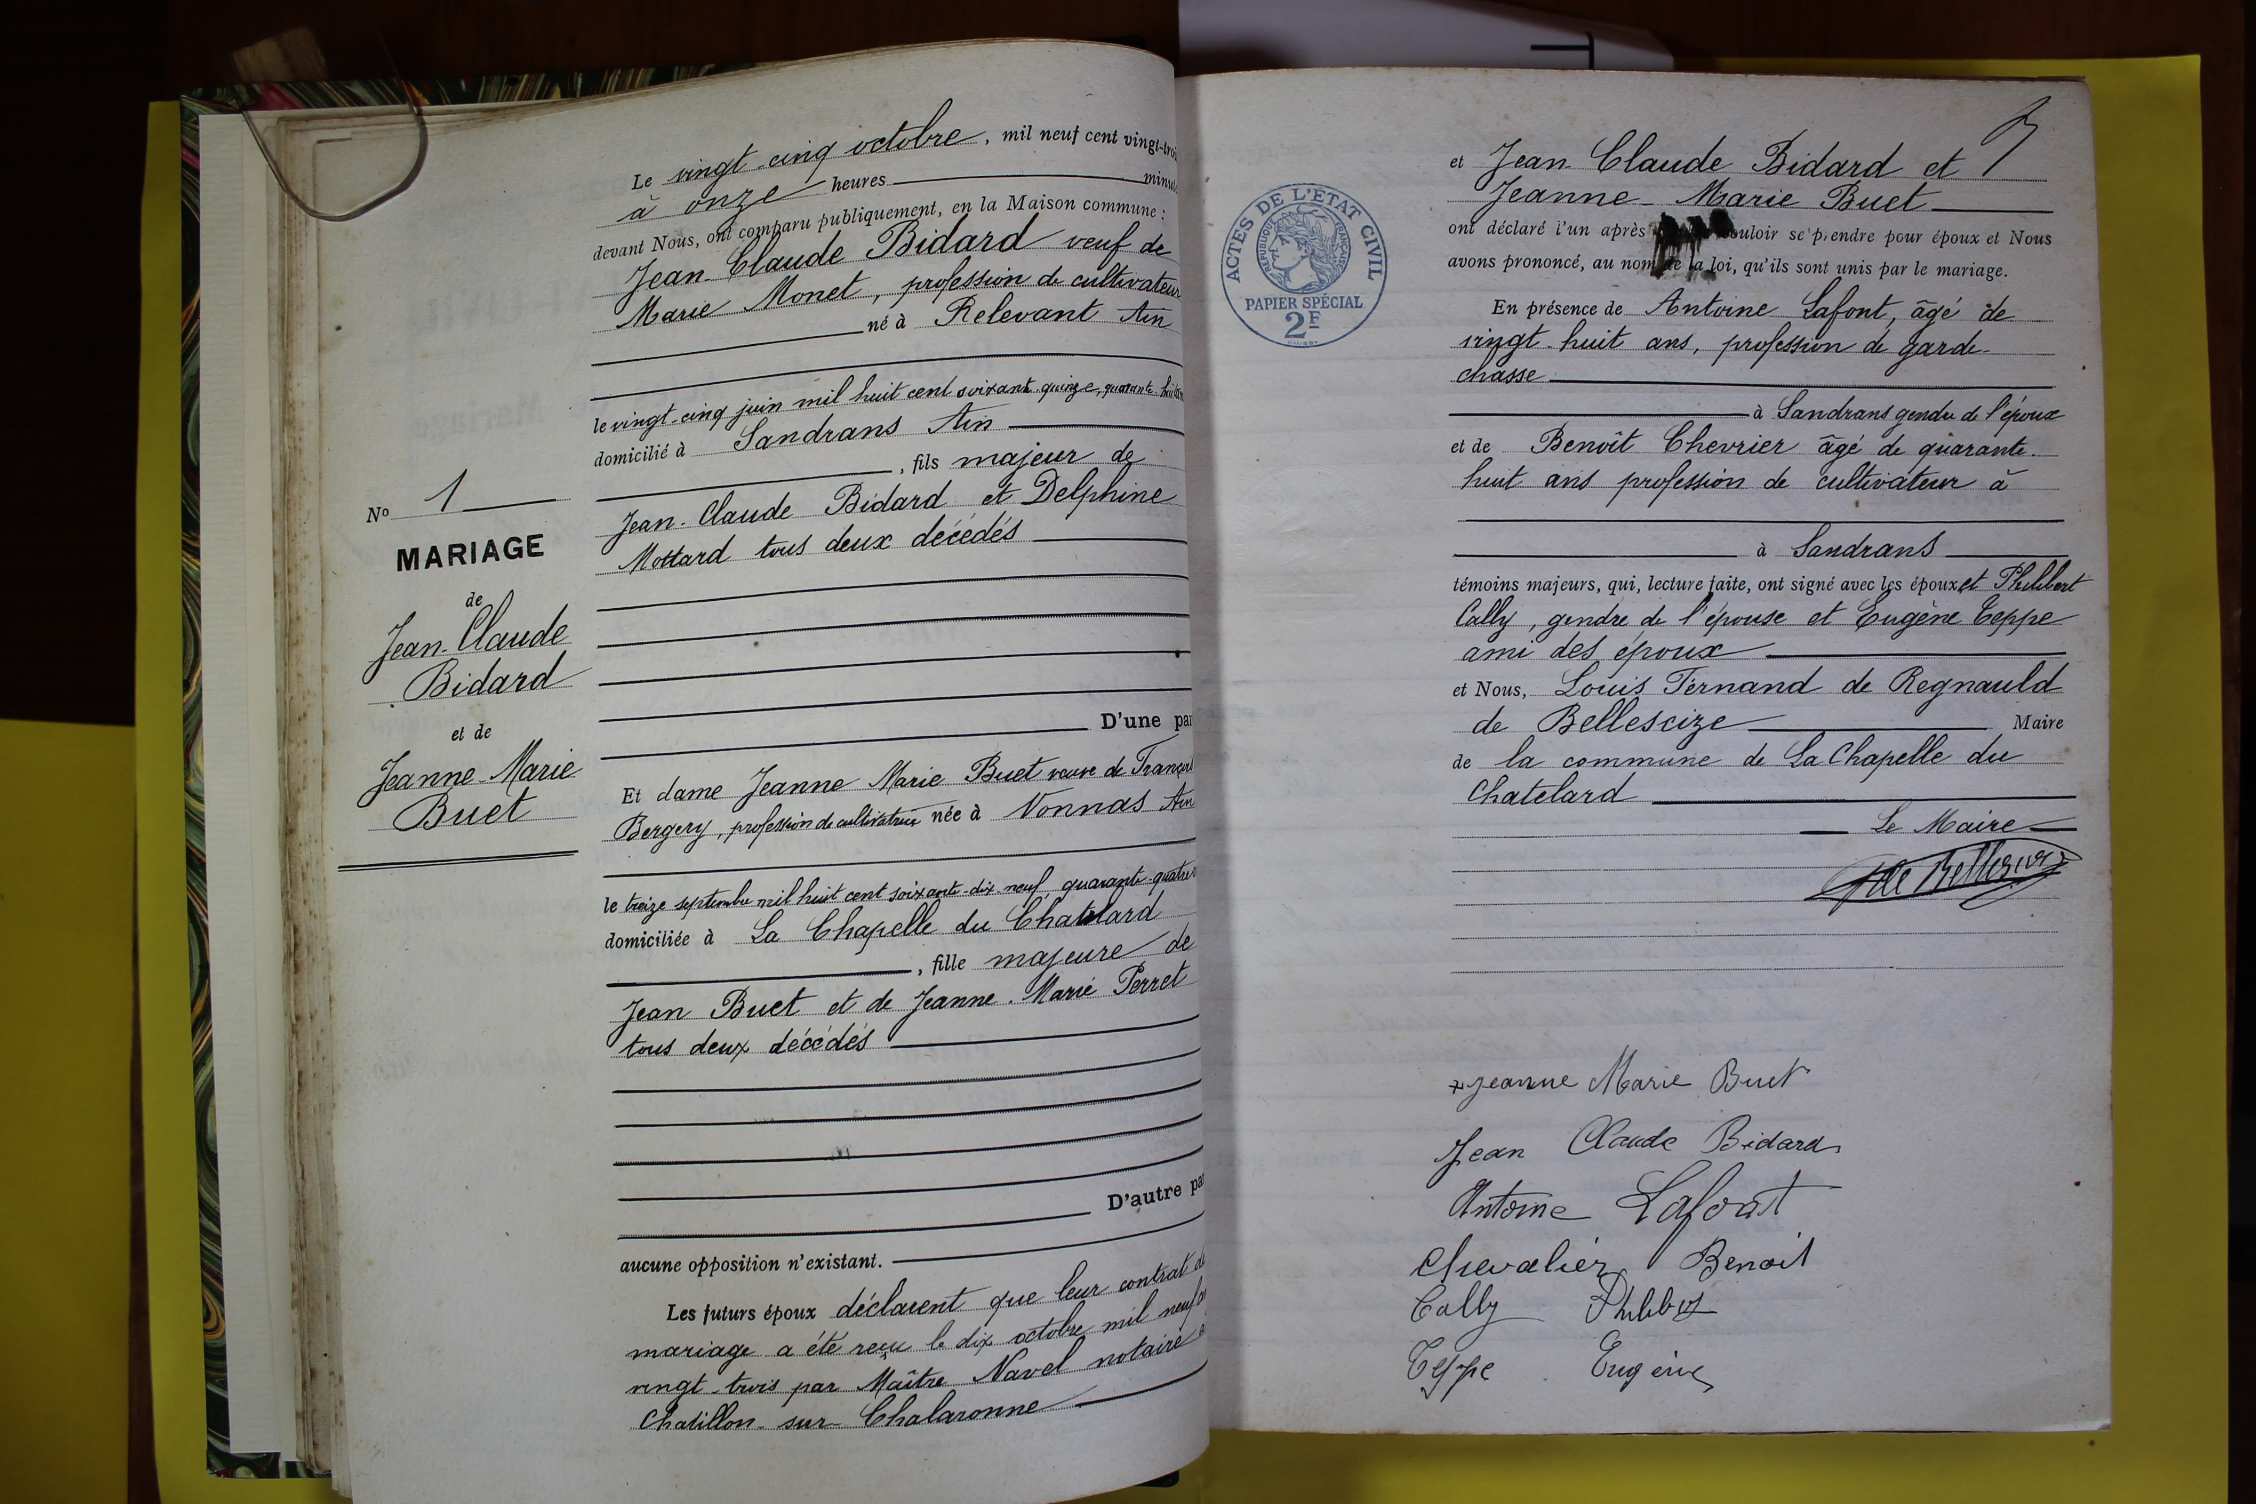 Nº 1
MARIAGE
de
Jean-Claude
Bidard
et de
Jeanne-Marie
Buet
Le vingt-cinq octobre, mil neuf cent vingt-trois
à onze heures minutes
devant Nous, ont comparu publiquement, en la Maison commune :
Jean-Claude Bidard veuf de
Marie Monet, profession de cultivateur
né à Relevant Ain
le vingt-cinq juin mil huit cent soixante quinze, quarante huit ans
domicilié à Sandrans Ain
, fils majeur de
Jean-Claude Bidard et Delphine
Mottard tous deux décédés
D'une par
Et dame Jeanne Marie Buet veuve de François
Bergery, profession de cultivatrice née à Vonnas Ain
le treize septembre mil huit cent soixante-dix-neuf, quarante-quatre
domiciliée à La Chapelle du Chatelard
, fille majeure de
Jean Buet et de Jeanne-Marie Perret
tous deux décédés
D'autre par
aucune opposition n'existant.
Les futurs époux déclarent que leur contrat de
mariage a été reçu le dix octobre mil neuf cent
vingt-trois par Maître Navel notaire à
Chatillon-sur-Chalaronne
ACTES DE L'ETAT CIVIL
REPUBLIQUE FRANÇAISE
PAPIER SPÉCIAL
2F
et Jean-Claude Bidard et
Jeanne-Marie Buet
ont déclaré l'un après vouloir se prendre pour époux et Nous
avons prononcé, au nom de la loi, qu'ils sont unis par le mariage.
En présence de Antoine Lafont, âgé de
vingt-huit ans, profession de garde-
chasse
à Sandrans gendre de l'époux
et de Benoît Chevrier âgé de quarante-
huit ans profession de cultivateur à
à Sandrans
témoins majeurs, qui, lecture faite, ont signé avec les époux et Philibert
Cally, gendre de l'épouse et Eugène Teppe
ami des époux
et Nous, Louis Fernand de Regnauld
de Bellescize Maire
de la commune de La Chapelle du
Chatelard
Le Maire
de Bellescize
Jeanne Marie Buet
Jean Claude Bidard
Antoine Lafont
Chevalier Benoit
Cally Philibert
Teppe Eugène